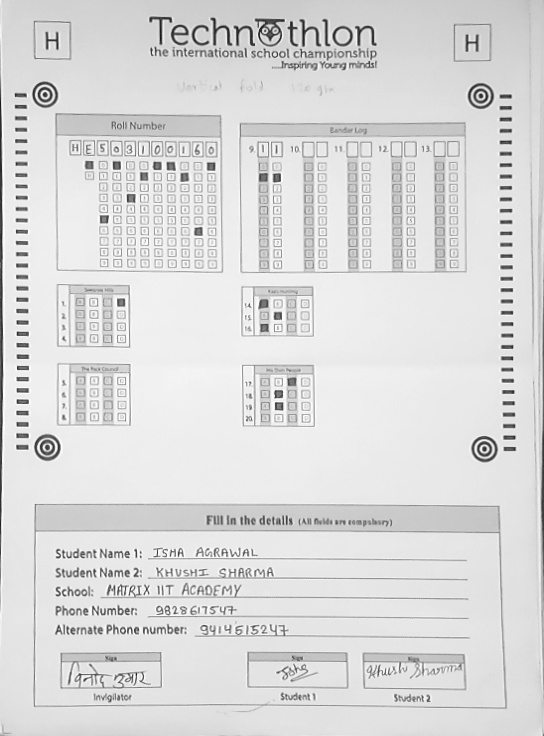 H
H
Technothlon
the international school championship
....Inspiring Young minds!
Vertical fold
Roll Number
HE503100160
Bandar Log
9. 1 1 10. 11. 12. 13.
Seeonee Hills
1.
2.
3.
4.
14.
15.
16.
The Pack Council
5.
6.
7.
8.
17.
18.
19.
20.
Fill in the details (All fields are compulsory)
Student Name 1: ISHA AGRAWAL
Student Name 2: KHUSHI SHARMA
School: MATRIX IIT ACADEMY
Phone Number: 9828617547
Alternate Phone number: 9414515247
Sign Sign Sign
विनोद कुमार Isha Khushi Sharma
Invigilator Student 1 Student 2